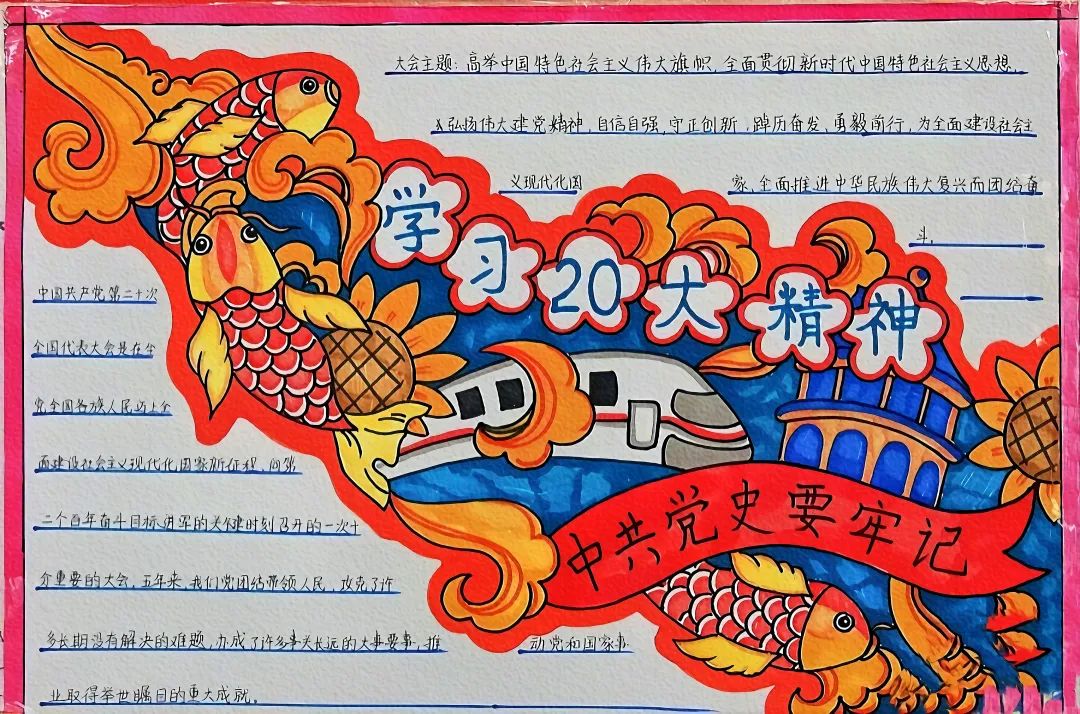 大会主题:高举中国特色社会主义伟大旗帜,全面贯彻新时代中国特色社会主义思想,
弘扬伟大建党精神,自信自强,守正创新,踔厉奋发,勇毅前行,为全面建设社会主
义现代化国 家,全面推进中华民族伟大复兴而团结奋
斗。
学习20大精神
中国共产党第二十次
全国代表大会是在全
党全国各族人民迈上全
面建设社会主义现代化国家新征程,向第
二个百年奋斗目标进军的关键时刻召开的一次十
分重要的大会,五年来,我们党团结带领人民,攻克了许
多长期没有解决的难题,办成了许多事关长远的大事要事,推 动党和国家事
业取得举世瞩目的重大成就。
中共党史要牢记